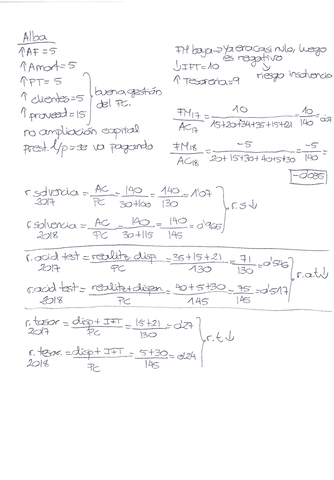 Alba
↑AF = 5
↑Amort = 5
↑PT = 5
↑clientes = 5
↑proveed = 15
buena gestión
del PC.
no ampliación capital
prest. l/p = se va pagando
FM baja → ya era casi nulo, luego
es negativo
↓IFT = 10
↑Tesorería = 9
riesgo insolvencia
FM17/AC17 = 10/(15+20+34+35+15+21) = 10/140
FM18/AC18 = -5/(20+15+30+40+5+30) = -5/140 =
-0'035
r. solvencia 2017 = AC/PC = 140/(30+100) = 140/130 = 1'07
r. solvencia 2018 = AC/PC = 140/(30+115) = 140/145 = 0'965
r.s↓
r. acid test 2017 = realiz+disp/PC = (35+15+21)/130 = 71/130 = 0'546
r. acid test 2018 = realiz+dispon/PC = (40+5+30)/145 = 75/145 = 0'517
r.a.t↓
r. tesor 2017 = disp+IFT/PC = (15+21)/130 = 0'27
r. tesor. 2018 = disp+IFT/PC = (5+30)/145 = 0'24
r.t↓